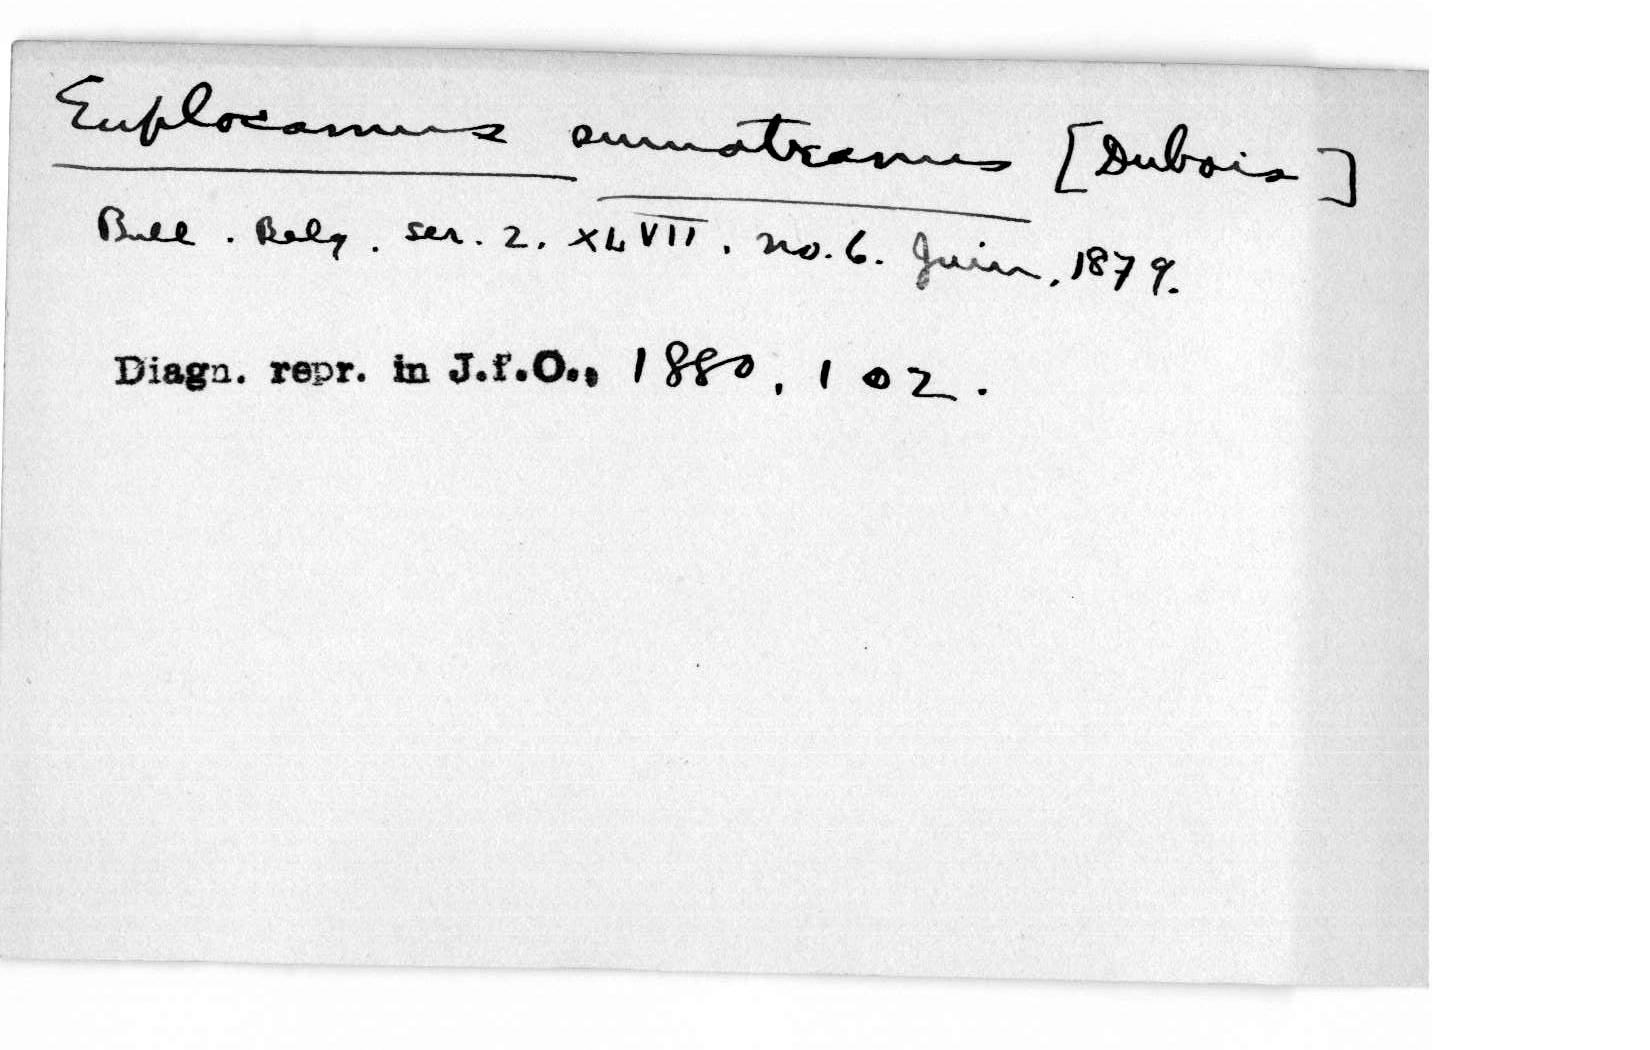 Euplocamus sumatranus [Dubois]
Bull. Belg. ser. 2. XLVII. no. 6. Juin, 1879.
Diagn. repr. in J.f.O., 1880, 102.